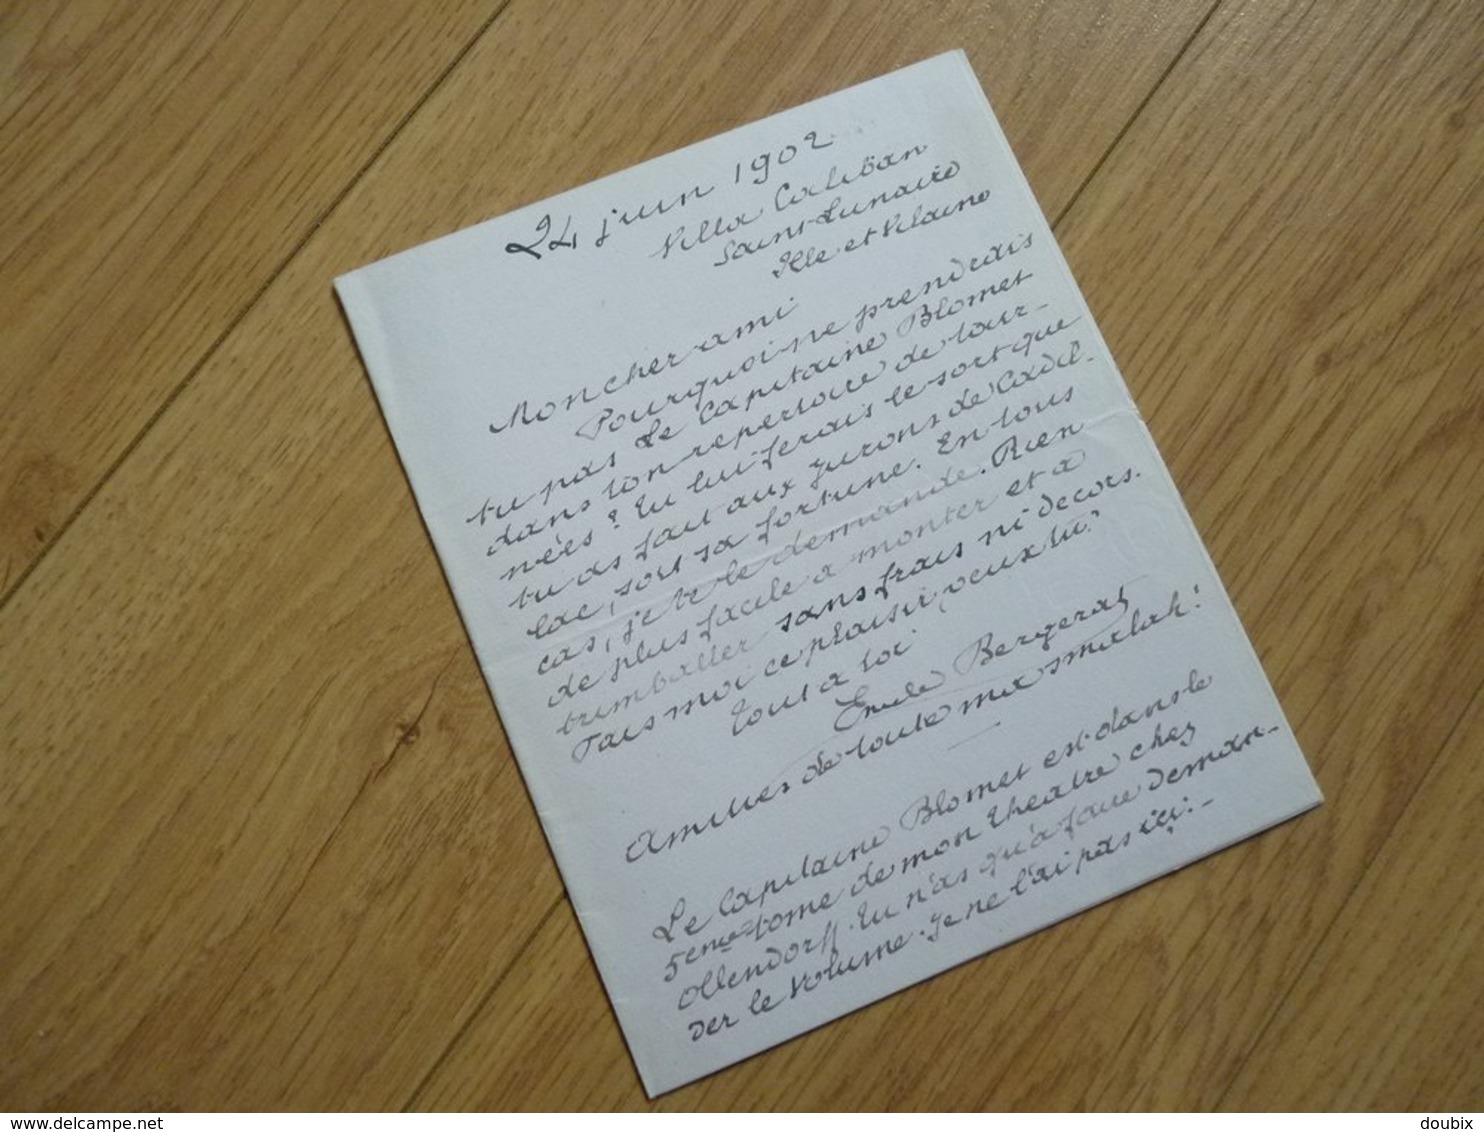 24 juin 1902
Villa Caliban
Saint-Lunaire
Ille et Vilaine
Mon cher ami
Pourquoi ne prendrais
tu pas Le Capitaine Blomet
dans ton repertoire de tour-
nées? Tu lui ferais le sort que
tu as fait aux Jurons de Cadil-
lac, soit sa fortune. En tous
cas, je te le demande. Rien
de plus facile a monter et a
trimballer sans frais ni decors.
Fais moi ce plaisir, veux tu?
Tout a toi
Emile Bergerat
Amities de toute ma smalah!
Le Capitaine Blomet est dans le
5eme tome de mon theatre chez
Ollendorff. Tu n'as qu'a faire deman-
der le volume. Je ne l'ai pas içi.-
delcampe.net
doubix